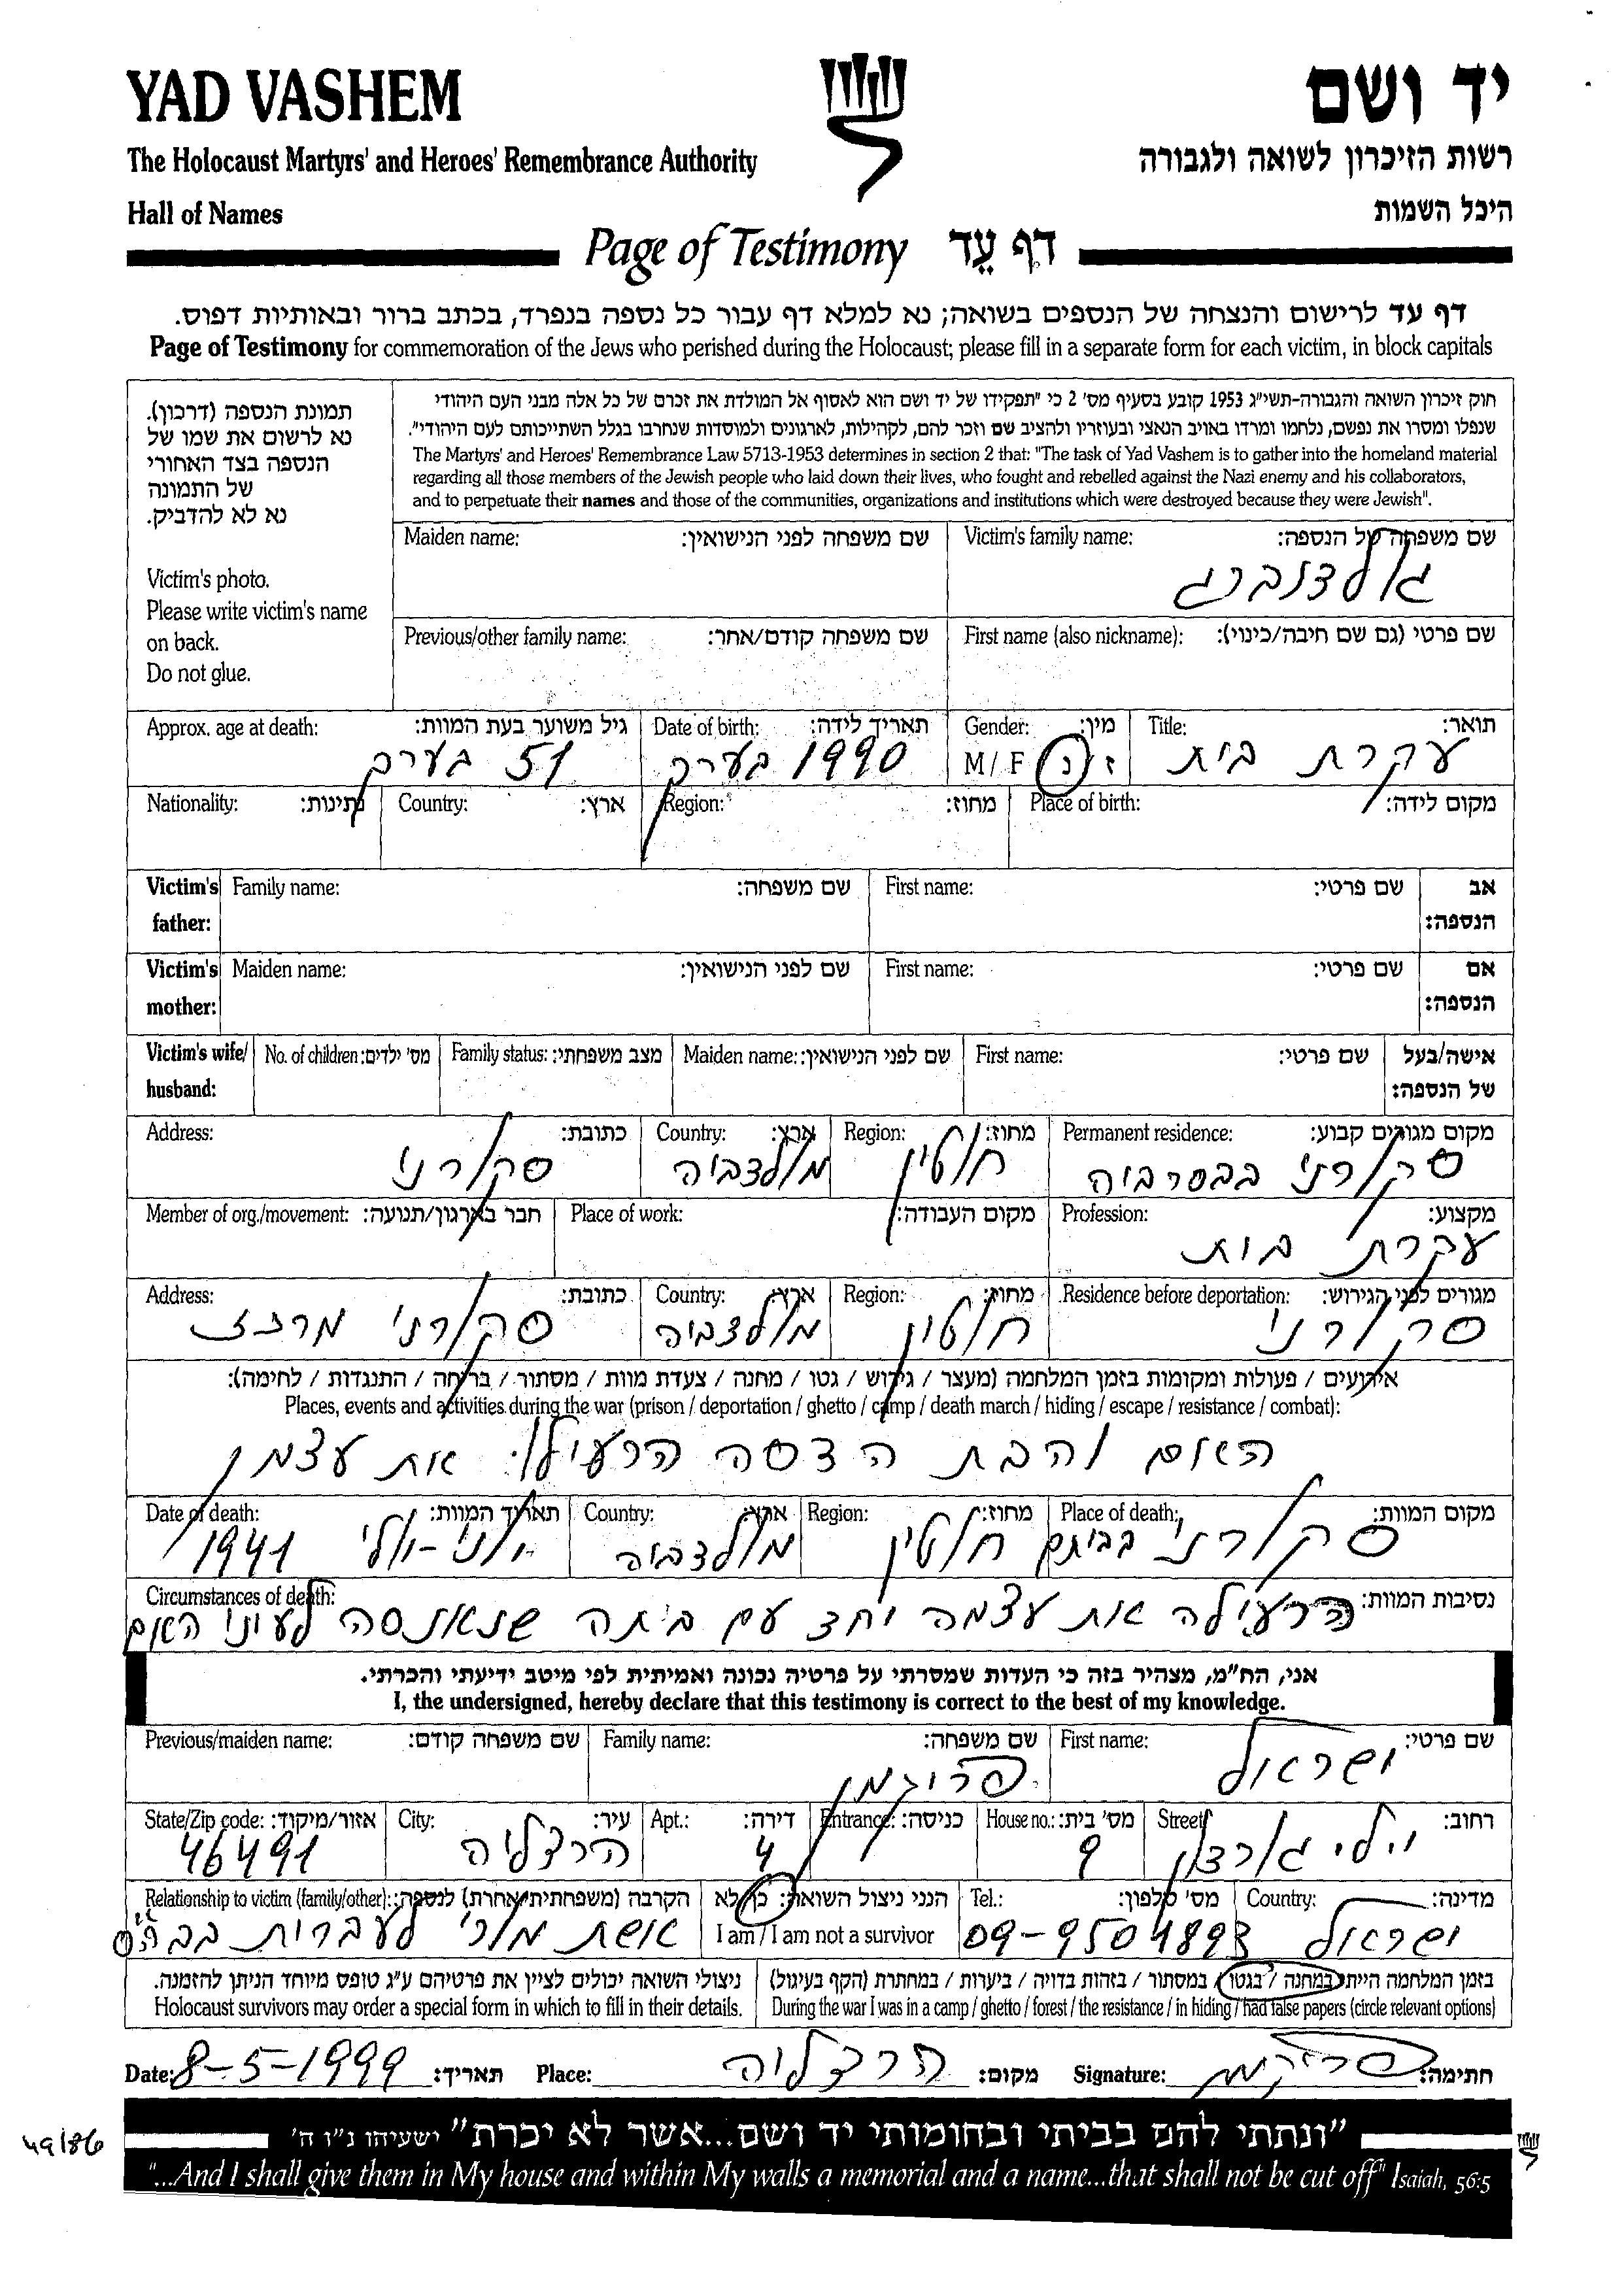 YAD VASHEM
יד ושם
The Holocaust Martyrs' and Heroes' Remembrance Authority
רשות הזיכרון לשואה ולגבורה
Hall of Names
היכל השמות
Page of Testimony דף עֵד
דף עד לרישום והנצחה של הנספים בשואה; נא למלא דף עבור כל נספה בנפרד, בכתב ברור ובאותיות דפוס.
Page of Testimony for commemoration of the Jews who perished during the Holocaust; please fill in a separate form for each victim, in block capitals
תמונת הנספה (דרכון).
נא לרשום את שמו של
הנספה בצד האחורי
של התמונה
נא לא להדביק.
Victim's photo.
Please write victim's name
on back.
Do not glue.
חוק זיכרון השואה והגבורה-תשי"ג 1953 קובע בסעיף מס' 2 כי "תפקידו של יד ושם הוא לאסוף אל המולדת את זכרם של כל אלה מבני העם היהודי
שנפלו ומסרו את נפשם, נלחמו ומרדו באויב הנאצי ובעוזריו ולהציב שם וזכר להם, לקהילות, לארגונים ולמוסדות שנחרבו בגלל השתייכותם לעם היהודי".
The Martyrs' and Heroes' Remembrance Law 5713-1953 determines in section 2 that: "The task of Yad Vashem is to gather into the homeland material
regarding all those members of the Jewish people who laid down their lives, who fought and rebelled against the Nazi enemy and his collaborators,
and to perpetuate their names and those of the communities, organizations and institutions which were destroyed because they were Jewish".
Victim's family name: שם משפחה של הנספה:
גולדנברג
Maiden name: שם משפחה לפני הנישואין:
First name (also nickname): שם פרטי (גם שם חיבה/כינוי):
Previous/other family name: שם משפחה קודם/אחר:
Title: תואר:
עקרת בית
Gender: מין:
M / F ז / נ
Date of birth: תאריך לידה:
1990 בערך
Approx. age at death: גיל משוער בעת המוות:
51 בערך
Place of birth: מקום לידה:
Region: מחוז:
Country: ארץ:
Nationality: נתינות:
Victim's father: Family name: שם משפחה: First name: שם פרטי: אב הנספה:
Victim's mother: Maiden name: שם לפני הנישואין: First name: שם פרטי: אם הנספה:
Victim's wife/ husband: No. of children: מס' ילדים: Family status: מצב משפחתי: Maiden name: שם לפני הנישואין: First name: שם פרטי: אישה/בעל של הנספה:
Permanent residence: מקום מגורים קבוע:
סקורני בבסרביה
Region: מחוז:
חוטין
Country: ארץ:
מולדביה
Address: כתובת:
סקורני
Profession: מקצוע:
עקרת בית
Place of work: מקום העבודה:
Member of org./movement: חבר בארגון/תנועה:
Residence before deportation: מגורים לפני הגירוש:
סקורני
Region: מחוז:
חוטין
Country: ארץ:
מולדביה
Address: כתובת:
סקורני מרכז
אירועים / פעולות ומקומות בזמן המלחמה (מעצר / גירוש / גטו / מחנה / צעדת מוות / מסתור / בריחה / התנגדות / לחימה):
Places, events and activities during the war (prison / deportation / ghetto / camp / death march / hiding / escape / resistance / combat):
האם והבת הדסה הרעילו את עצמן
Place of death: מקום המוות:
סקורני בביתם
Region: מחוז:
חוטין
Country: ארץ:
מולדביה
Date of death: תאריך המוות:
יוני-יולי 1941
Circumstances of death: נסיבות המוות:
הרעילה את עצמה יחד עם ביתה שנאנסה לעיני האם
אני, הח"מ, מצהיר בזה כי העדות שמסרתי על פרטיה נכונה ואמיתית לפי מיטב ידיעתי והכרתי.
I, the undersigned, hereby declare that this testimony is correct to the best of my knowledge.
First name: שם פרטי:
ישראל
Family name: שם משפחה:
פרוגמן
Previous/maiden name: שם משפחה קודם:
Street רחוב:
וילי גורדון
House no.: מס' בית:
9
Entrance: כניסה:
Apt.: דירה:
4
City: עיר:
הרצליה
State/Zip code: אזור/מיקוד:
46491
Country: מדינה:
ישראל
Tel.: מס' טלפון:
09-9504893
הנני ניצול השואה: כן/לא
I am / I am not a survivor
Relationship to victim (family/other): הקרבה (משפחתית/אחרת) לנספה:
אשת מורי לעברית
בזמן המלחמה הייתי במחנה / בגטו / במסתור / בזהות בדויה / ביערות / במחתרת (הקף בעיגול)
During the war I was in a camp / ghetto / forest / the resistance / in hiding / had false papers (circle relevant options)
ניצולי השואה יכולים לציין את פרטיהם ע"ג טופס מיוחד הניתן להזמנה.
Holocaust survivors may order a special form in which to fill in their details.
Date: 8-5-1999 תאריך: Place: הרצליה מקום: Signature: חתימה:
"ונתתי להם בביתי ובחומותי יד ושם...אשר לא יכרת" ישעיהו נ"ו ה'
"...And I shall give them in My house and within My walls a memorial and a name...that shall not be cut off" Isaiah, 56:5
49/86